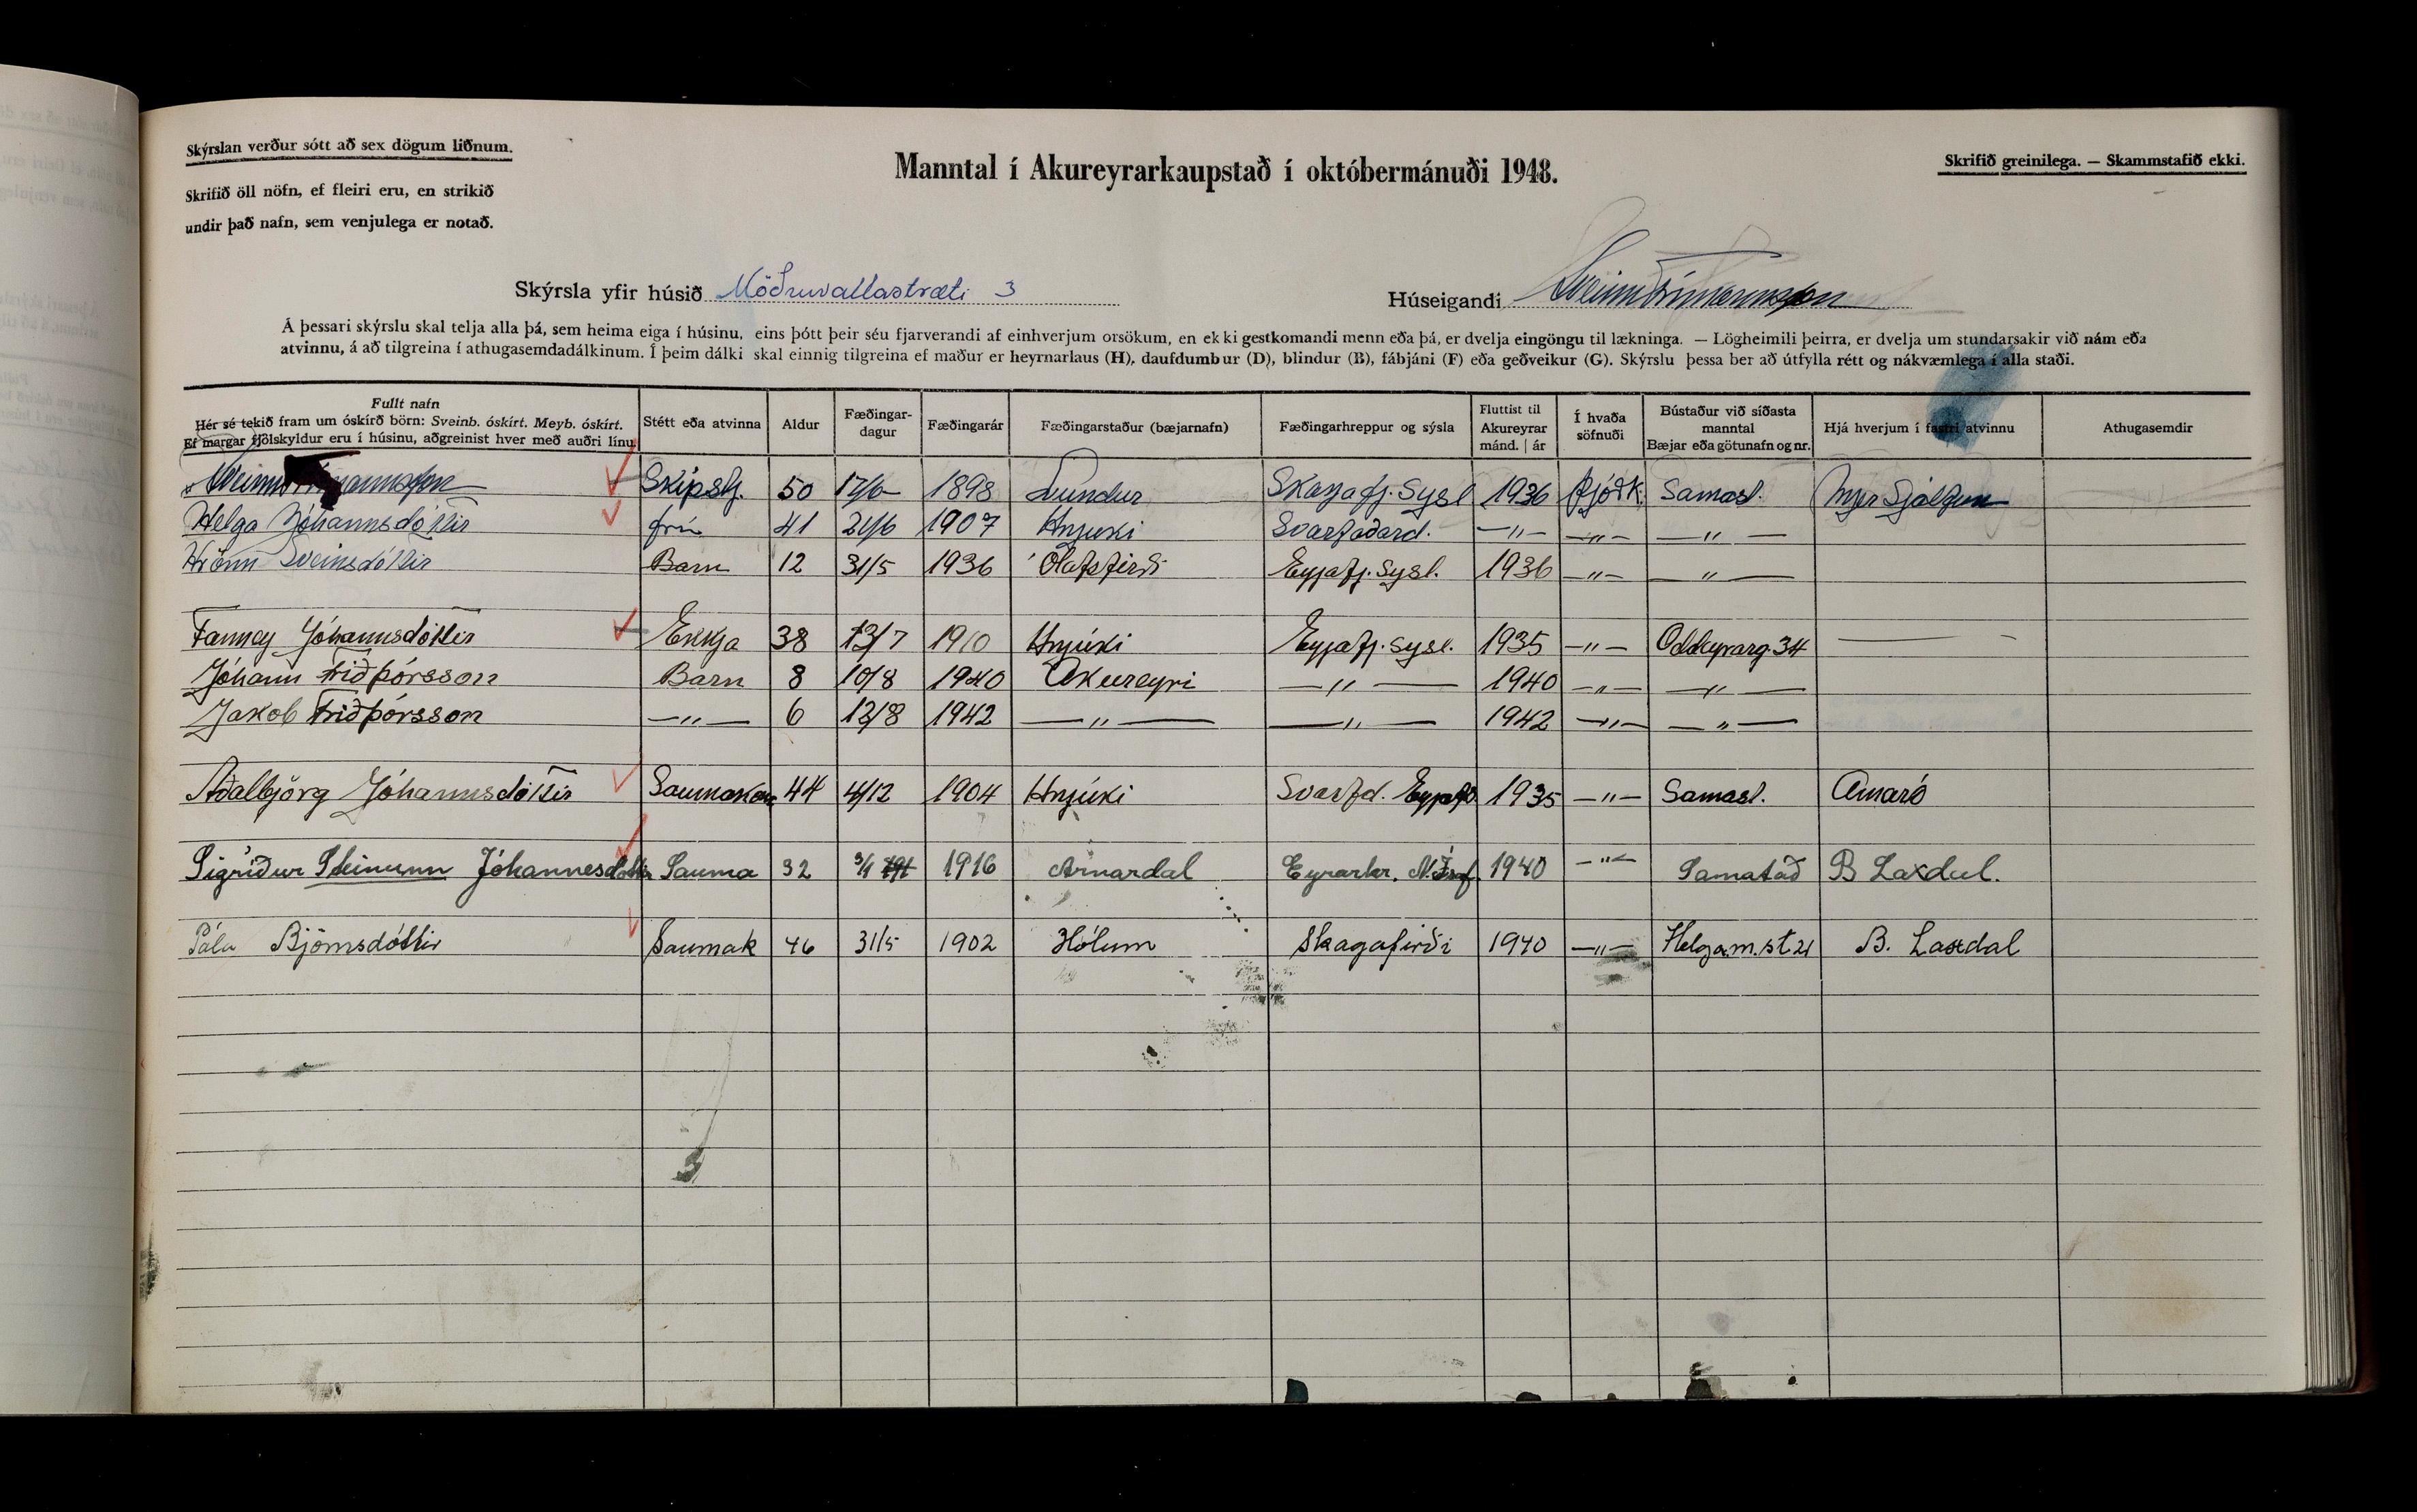 Skýrslan verður sótt að sex dögum liðnum.
Skrifið öll nöfn, ef fleiri eru, en strikið
undir það nafn, sem venjulega er notað.
Manntal í Akureyrarkaupstað í októbermánuði 1948.
Skrifið greinilega. — Skammstafið ekki.
Skýrsla yfir húsið Möðruvallastræti 3
Húseigandi
Á þessari skýrslu skal telja alla þá, sem heima eiga í húsinu, eins þótt þeir séu fjarverandi af einhverjum orsökum, en ekki gestkomandi menn eða þá, er dvelja eingöngu til lækninga. — Lögheimili þeirra, er dvelja um stundarsakir við nám eða
atvinnu, á að tilgreina í athugasemdadálkinum. Í þeim dálki skal einnig tilgreina ef maður er heyrnarlaus (H), daufdumbur (D), blindur (B), fábjáni (F) eða geðveikur (G). Skýrslu þessa ber að útfylla rétt og nákvæmlega í alla staði.
Fullt nafn
Hér sé tekið fram um óskírð börn: Sveinb. óskírt. Meyb. óskírt.
Ef margar fjölskyldur eru í húsinu, aðgreinist hver með auðri línu.
Stétt eða atvinna
Aldur
Fæðingar-
dagur
Fæðingarár
Fæðingarstaður (bæjarnafn)
Fæðingarhreppur og sýsla
Fluttist til
Akureyrar
mánd. | ár
Í hvaða
söfnuði
Bústaður við síðasta
manntal
Bæjar eða götunafn og nr.
Hjá hverjum í fastri atvinnu
Athugasemdir
Skipstj. 50 1898 Lundur Skagafj. Sysl 1936 Þjóðk. Samast.
Helga Jóhannsdóttir frú 41 21/6 1907 Hnjuki Svarfaðard. —"— —"— —"—
Hrönn Sveinsdóttir Barn 12 31/5 1936 Ólafsfirði Eyjafj. sysl. 1936 —"— —"—
Fanney Jóhannsdóttir Ekkja 38 13/7 1910 Hnjúki Eyjafj. sysl. 1935 —"— Oddeyrarg. 34
Jóhann Friðþórsson Barn 8 10/8 1940 Akureyri —"— 1940 —"— —"—
Jakob Friðþórsson —"— 6 12/8 1942 —"— —"— 1942 —"— —"—
Aðalbjörg Jóhannsdóttir Saumakona 44 4/12 1904 Hnjúki Svarfd. Eyjafj. 1935 —"— Samast. Amaró
Sigríður Steinunn Jóhannesdóttir Sauma 32 3/1 1916 Arnardal Eyrarhr. N. Ísaf. 1940 —"— Samastað B Laxdal.
Pála Björnsdóttir Saumak 46 31/5 1902 Hólum Skagafirði 1940 —"— Helga.m.st. 21 B. Laxdal